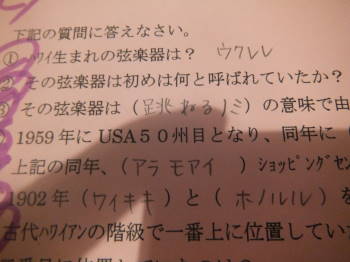 下記の質問に答えなさい。
① ﾊﾜｲ生まれの弦楽器は？ ウクレレ
② その弦楽器は初めは何と呼ばれていたか？
③ その弦楽器は（跳ねるノミ）の意味で由
1959年にUSA５０州目となり、同年に（
上記の同年、（アラモアナ）ｼｮｯﾋﾟﾝｸﾞｾﾝ
1902年（ワイキキ）と（ホノルル）を
古代ﾊﾜｲｱﾝの階級で一番上に位置してい